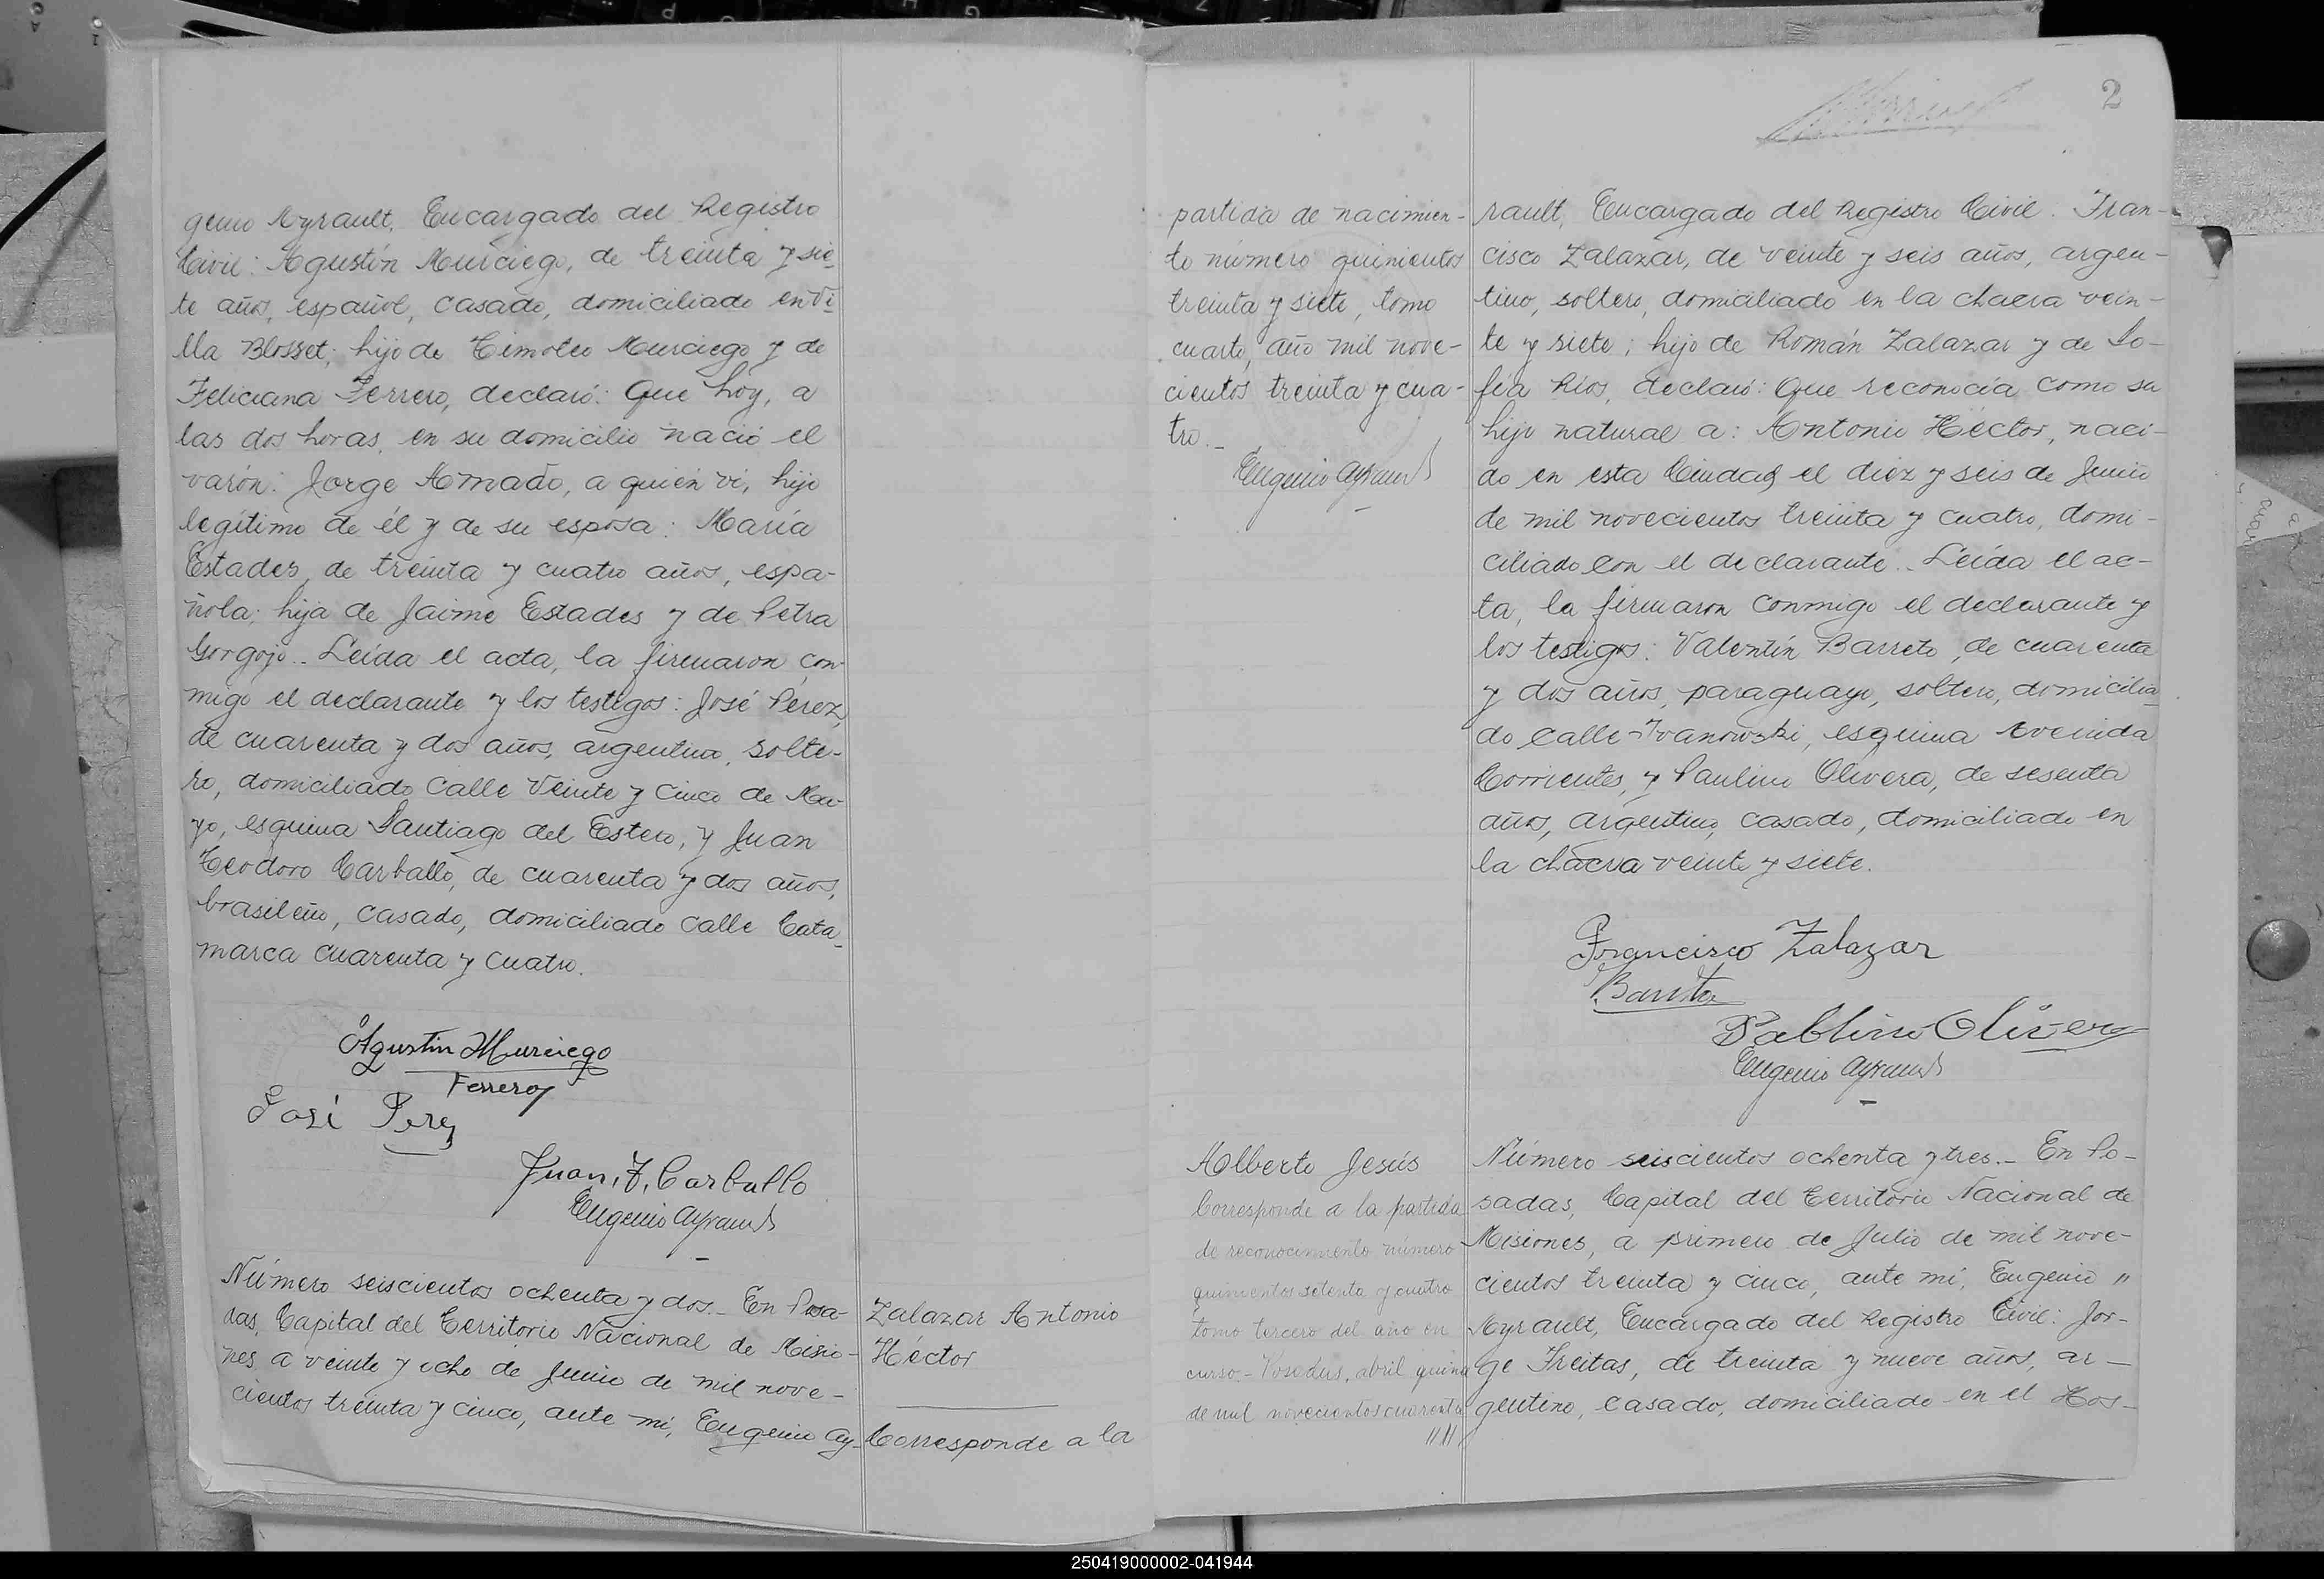 genio Ayrault, Encargado del Registro
Civil: Agustín Murciego, de treinta y sie-
te años, español, casado, domiciliado en Vi-
lla Blosset; hijo de Timoteo Murciego y de
Feliciana Ferrero, declaró: Que hoy, a
las dos horas, en su domicilio nació el
varón: Jorge Amado, a quién ví, hijo
legítimo de él y de su esposa: María
Estades, de treinta y cuatro años, espa-
ñola; hija de Jaime Estades y de Petra
Gorgojo.. Leída el acta, la firmaron con-
migo el declarante y los testigos: José Pérez,
de cuarenta y dos años, argentino, solte-
ro, domiciliado calle Veinte y Cinco de Ma-
yo, esquina Santiago del Estero, y Juan
Teodoro Carballo, de cuarenta y dos años,
brasileño, casado, domiciliado calle Cata-
marca cuarenta y cuatro.
Agustín Murciego
Ferrero
José Perez
Juan, T, Carballo
Eugenio Ayrault
Número seiscientos ochenta y dos.- En Posa-
das, Capital del Territorio Nacional de Misio-
nes, a veinte y ocho de Junio de mil nove-
cientos treinta y cinco, ante mí, Eugenio Ay-
Zalazar Antonio
Héctor
Corresponde a la
2
partida de nacimien-
to número quinientos
treinta y siete, tomo
cuarto, año mil nove-
cientos treinta y cua-
tro.-
Eugenio Ayrault
rault, Encargado del Registro Civil: Fran-
cisco Zalazar, de veinte y seis años, argen-
tino, soltero, domiciliado en la chacra vein-
te y siete; hijo de Román Zalazar y de So-
fía Ríos, declaró: Que reconocía como su
hijo natural a: Antonio Héctor, naci-
do en esta Ciudad el diez y seis de Junio
de mil novecientos treinta y cuatro, domi-
ciliado con el declarante.. Leída el ac-
ta, la firmaron conmigo el declarante y
los testigos: Valentín Barreto, de cuarenta
y dos años, paraguayo, soltero, domicilia-
do calle Ivanowski, esquina Avenida
Corrientes, y Paulino Olivera, de sesenta
años, argentino, casado, domiciliado en
la chacra veinte y siete.
Francisco Zalazar
Olivera
Eugenio Ayrault
Alberto Jesús
Corresponde a la partida
de reconocimiento número
quinientos setenta y cuatro
tomo tercero del año en
curso.- Posadas, abril quince
de mil novecientos cuarenta
////
Número seiscientos ochenta y tres.- En Po-
sadas, Capital del Territorio Nacional de
Misiones, a primero de Julio de mil nove-
cientos treinta y cinco, ante mí, Eugenio "
Ayrault, Encargado del Registro Civil: Jor-
ge Freitas, de treinta y nueve años, ar-
gentino, casado, domiciliado en el Hos-
250419000002-041944